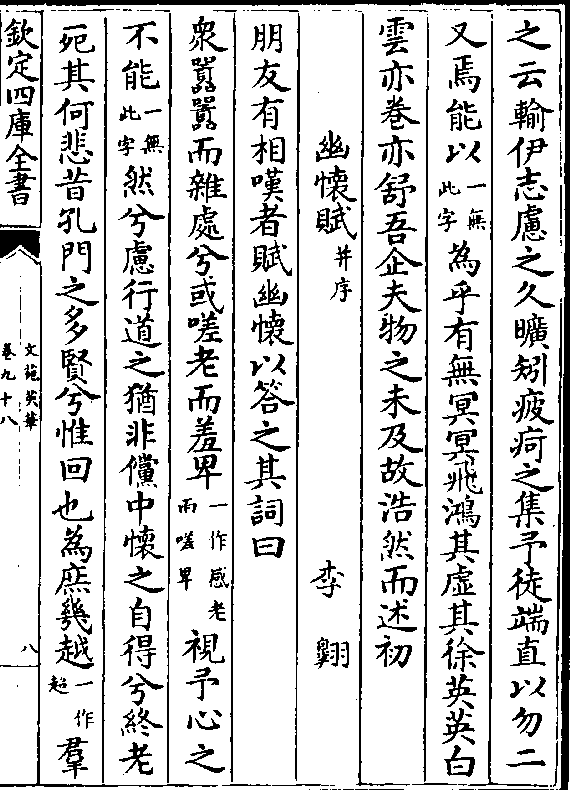 之云輸伊志慮之久曠矧疲疴之集予徒端直以勿二
又焉能以一無此字為乎有無冥冥飛鴻其虛其徐英英白
雲亦卷亦舒吾企夫物之未及故浩然而述初
幽懷賦并序 李翺
朋友有相嘆者賦幽懷以答之其詞曰
衆囂囂而雜處兮或嗟老而羞卑一作感老而嗟卑視予心之
不能一無此字然兮慮行道之猶非儻中懷之自得兮終老
死其何悲昔孔門之多賢兮惟回也為庶幾越一作超羣
欽定四庫全書
文苑英華
卷九十八
八